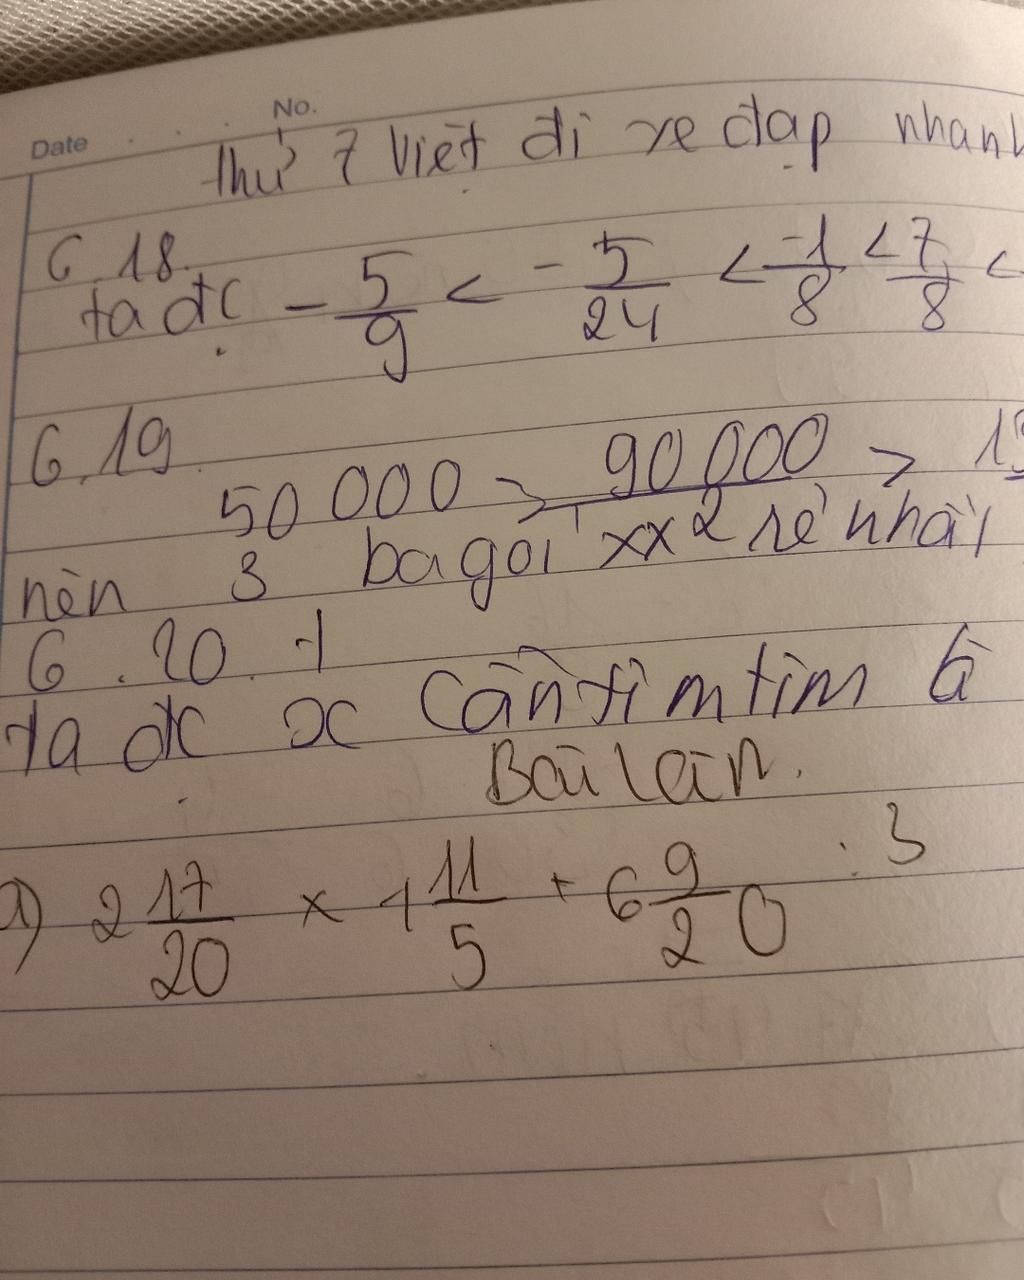 Date No.
thứ 7 Việt đi xe đạp nhanh
6.18.
ta đc - 5/9 < - 5/24 < -1/8 < 7/8 <
6.19.
50 000 > 90 000 >
nên 3 ba gói rẻ nhất
6.20.
ta đc x cần tìm tìm là
Bài làm.
a) 2 17/20 × 1 11/5 + 6 9/20 : 3